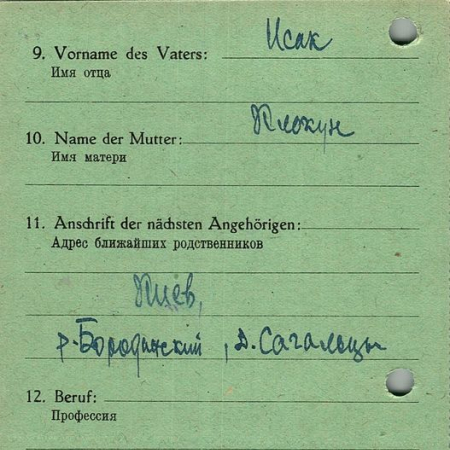 9. Vorname des Vaters: Исак
Имя отца
10. Name der Mutter: Клокун
Имя матери
11. Anschrift der nächsten Angehörigen:
Адрес ближайших родственников
Киев,
р-Бородянский, д. Сагальцы
12. Beruf:
Профессия